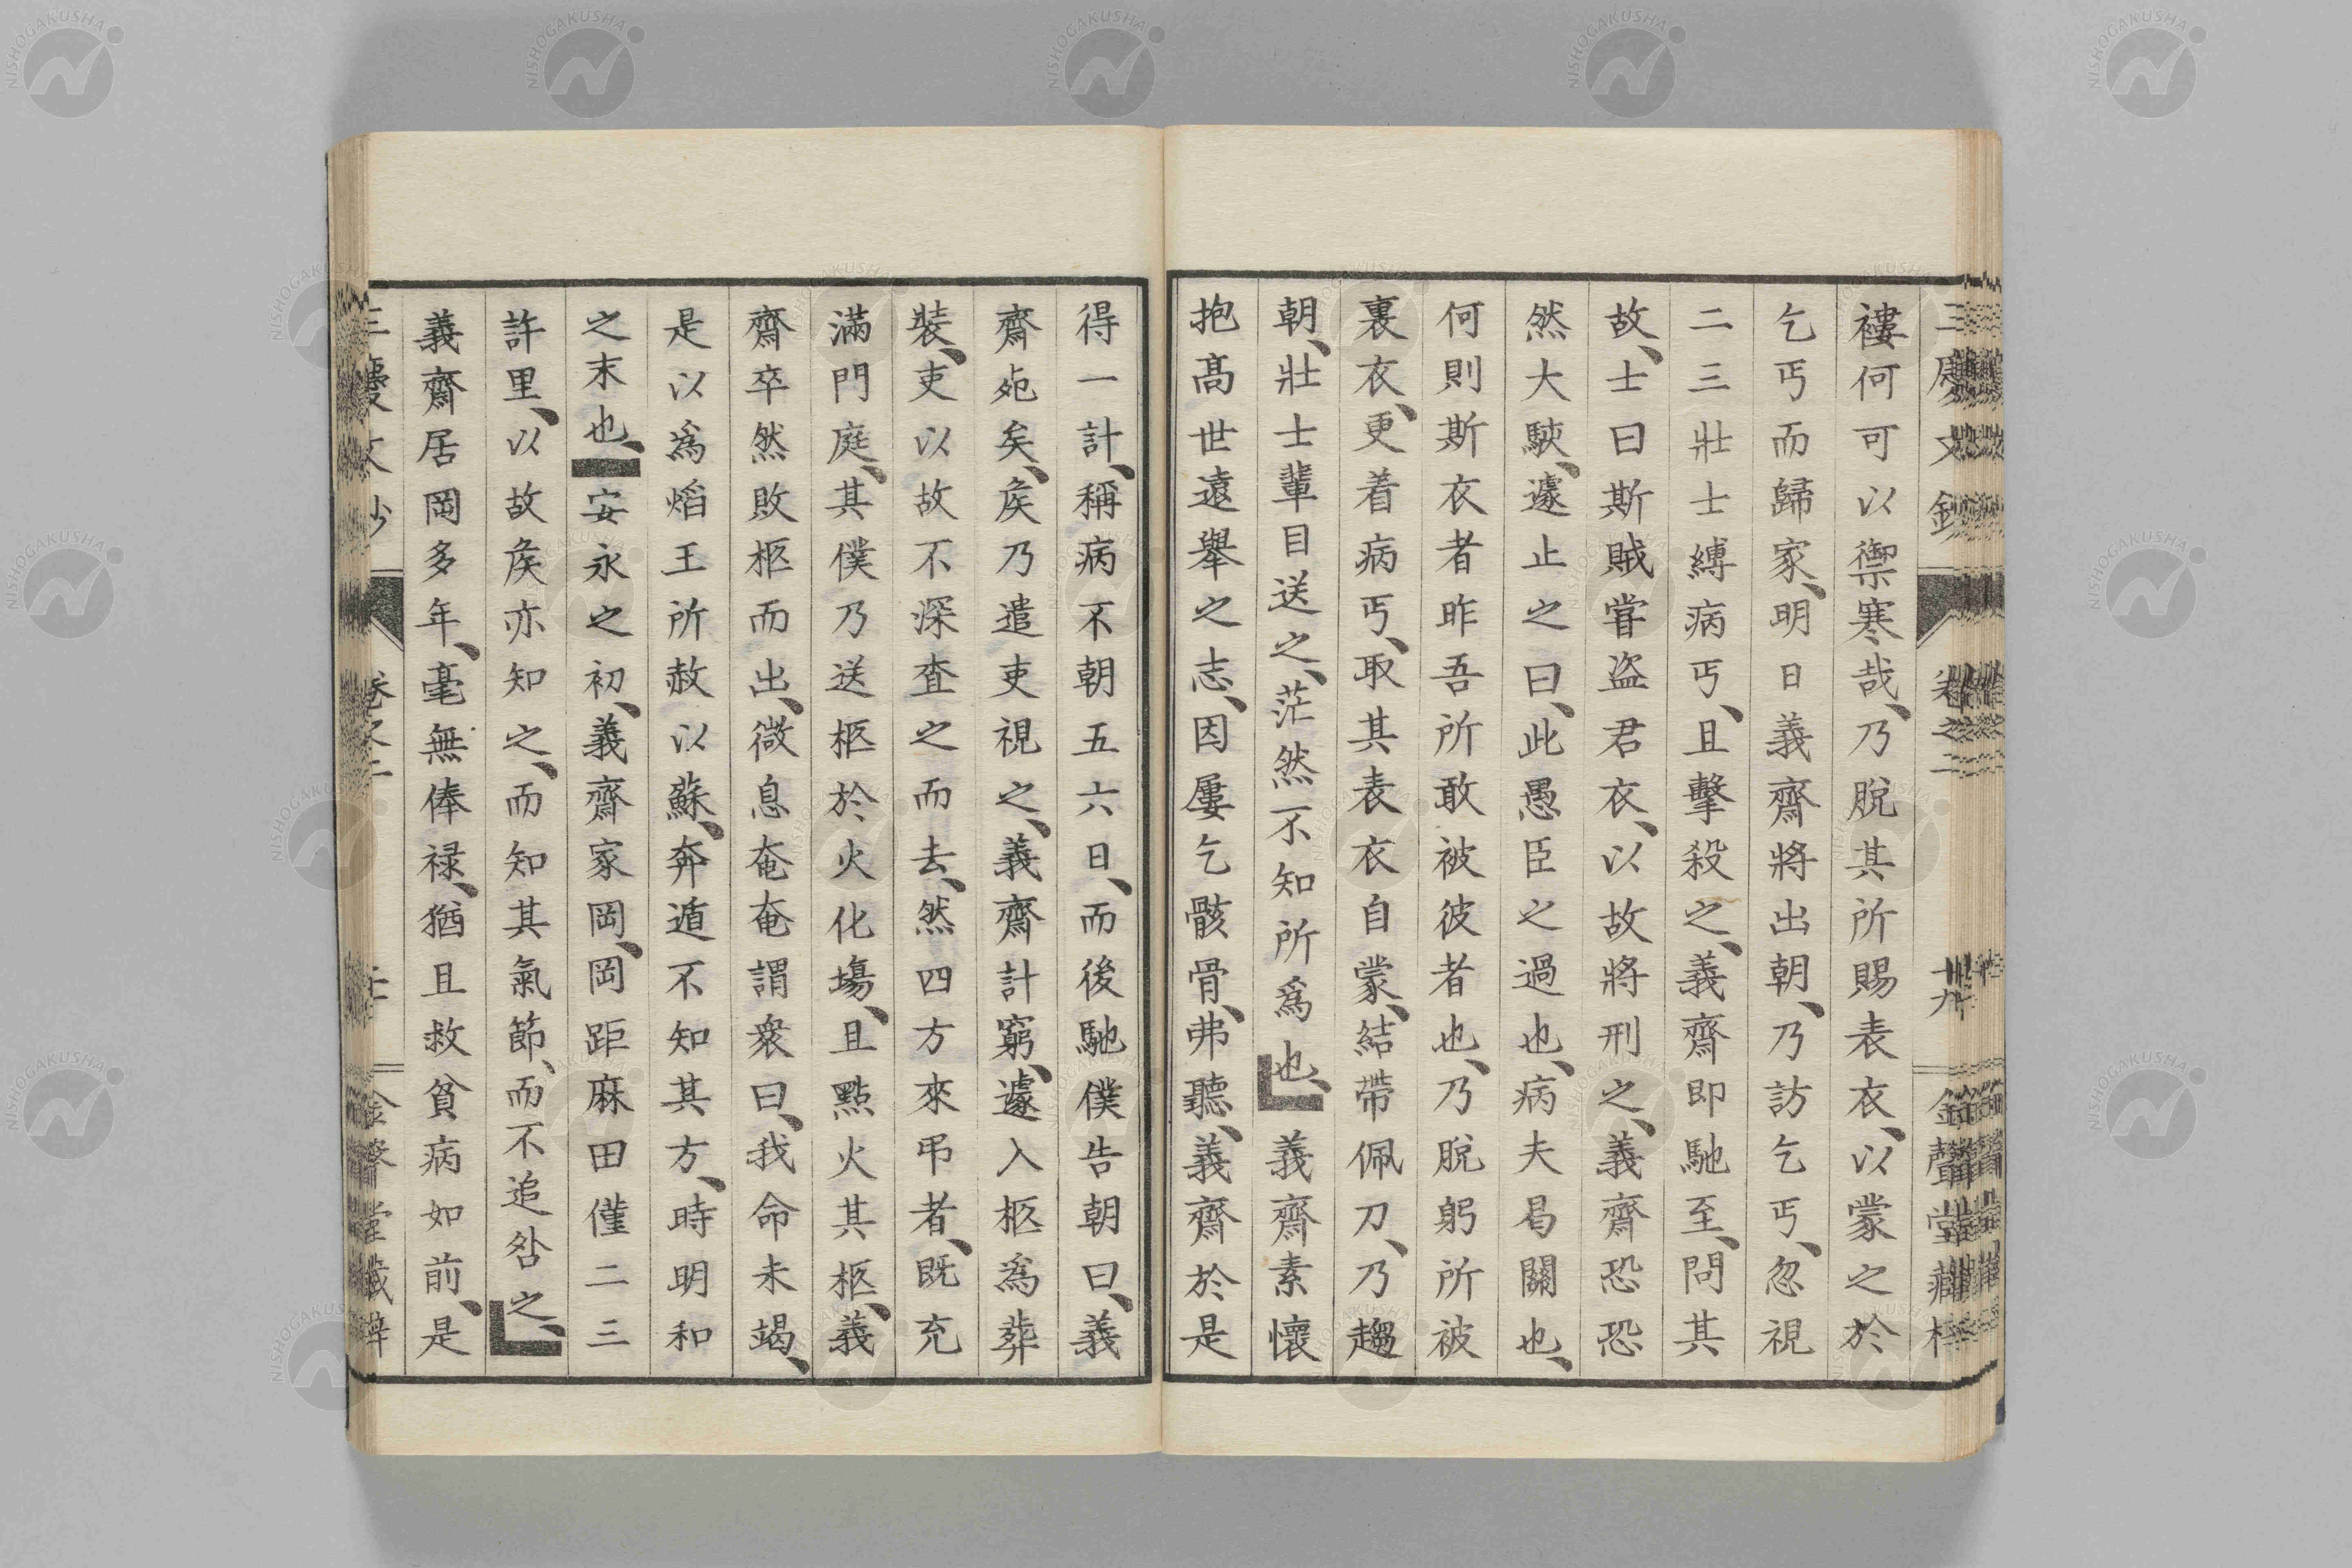 褸何可以禦寒哉、乃脫其所賜表衣、以蒙之於
乞丐而歸家、明日義齋將出朝、乃訪乞丐、忽視
二三壯士縛病丐、且擊殺之、義齋即馳至、問其
故、士曰斯賊嘗盜君衣、以故將刑之、義齋恐恐
然大駛、遽止之曰、此愚臣之過也、病夫曷關也、
何則斯衣者昨吾所敢被彼者也、乃脫躬所被
裏衣、更着病丐、取其表衣自蒙、結帶佩刀、乃趨
朝、壯士輩目送之、茫然不知所爲也、義齋素懷
抱髙世遠舉之志、因屢乞骸骨、弗聽、義齋於是
得一計、稱病不朝五六日、而後馳僕告朝曰、義
齋死矣、矦乃遣吏視之、義齋計窮、遽入柩爲葬
裝、吏以故不深査之而去、然四方來弔者、既充
滿門庭、其僕乃送柩於火化場、且點火其柩、義
齋卒然敗柩而出、微息奄奄謂衆曰、我命未竭、
是以爲熖王所赦以蘇、奔遁不知其方、時明和
之末也、安永之初、義齋家岡、岡距麻田僅二三
許里、以故矦亦知之、而知其氣節、而不追咎之、
義齋居岡多年、毫無俸禄、猶且救貧病如前、是
卷之二
NISHOGAKUSHA